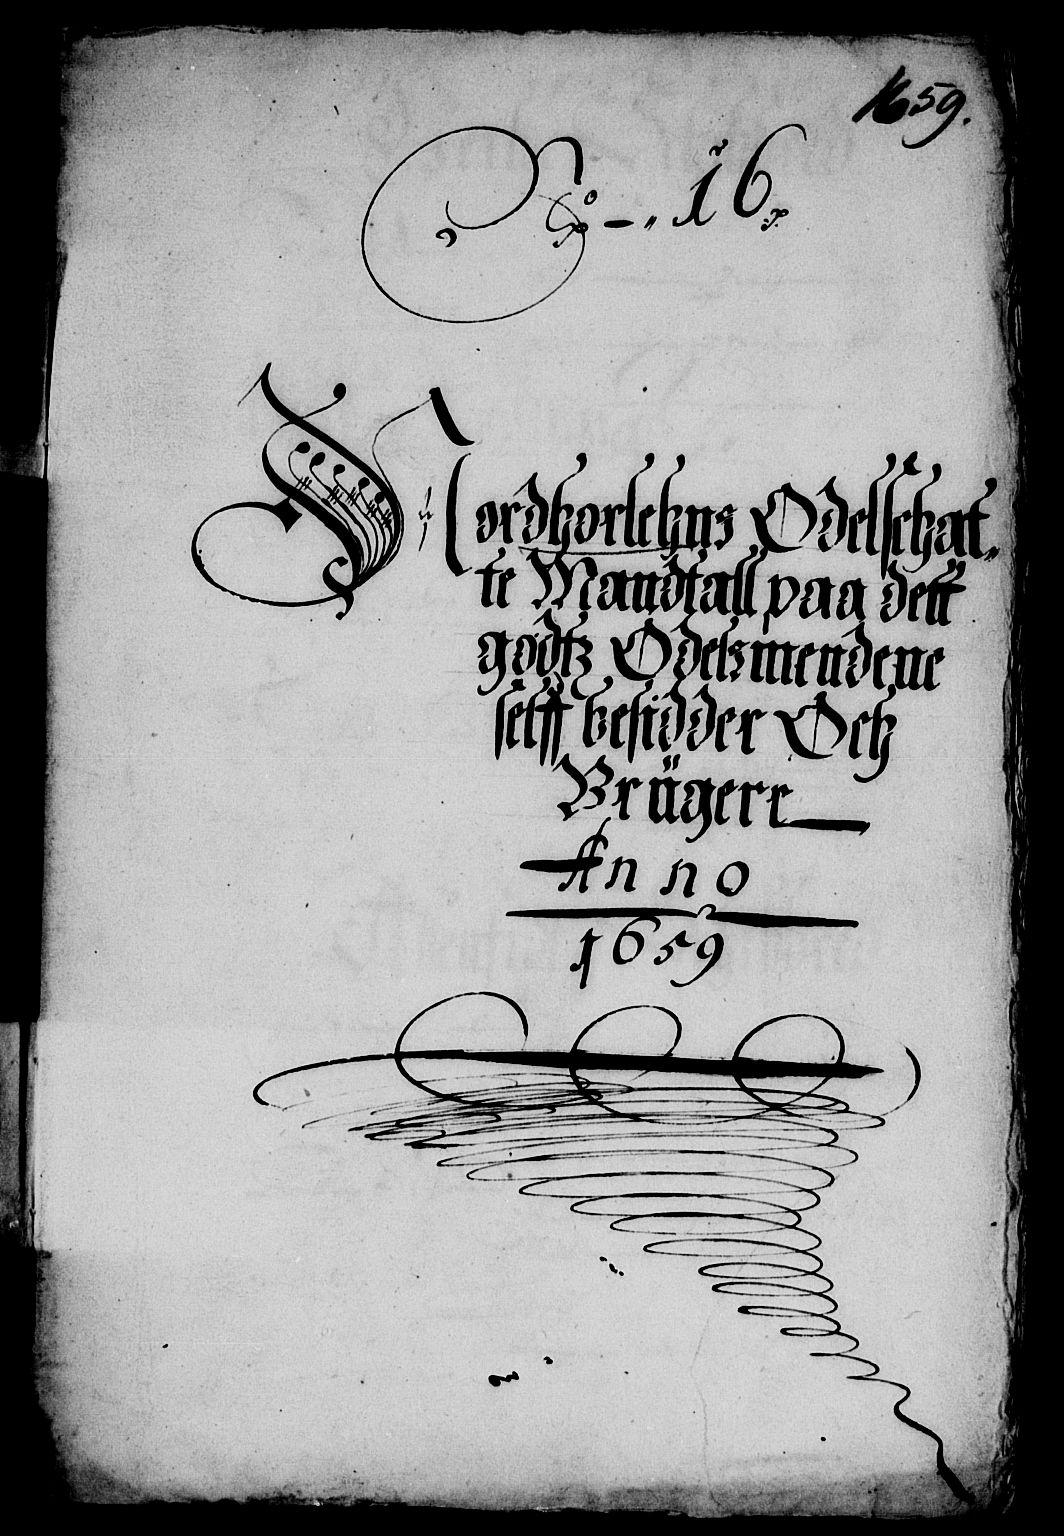 1659.
No – 16
Nordhorlehns Odelschat„
te Mandtall paa dett
godtz Odelsmendene
selff besidder Och
Brügerr
Anno
1659